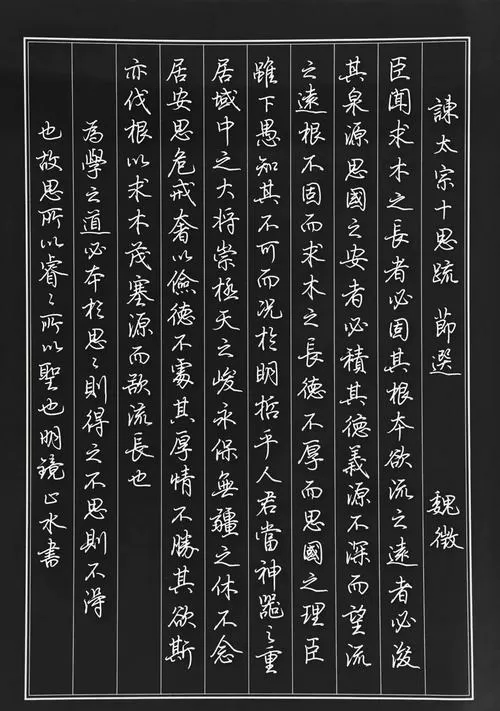 諫太宗十思疏 節選 魏徵
臣聞求木之長者必固其根本欲流之遠者必浚
其泉源思國之安者必積其德義源不深而望流
之遠根不固而求木之長德不厚而思國之理臣
雖下愚知其不可而况於明哲乎人君當神器之重
居域中之大将崇極天之峻永保無疆之休不念
居安思危戒奢以儉德不處其厚情不勝其欲斯
亦伐根以求木茂塞源而欲流長也
為學之道必本於思思則得之不思則不得
也故思所以睿睿所以聖也明鏡止水書